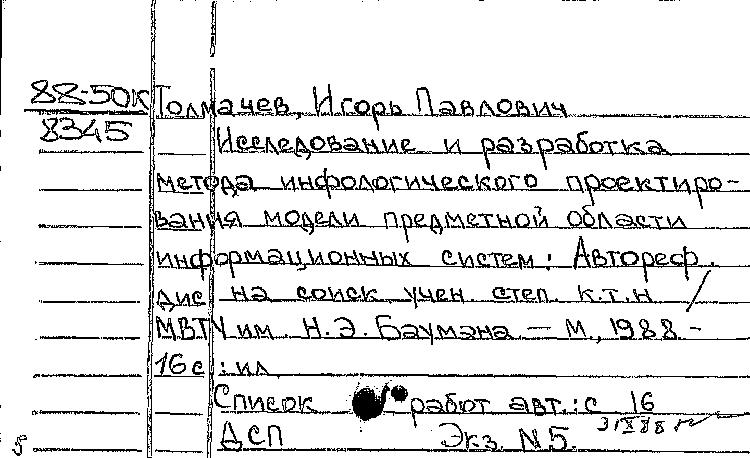 88-50К Толмачев, Игорь Павлович
8345 Исследование и разработка
метода инфологического проектиро-
вания модели предметной области
информационных систем: Автореф.
дис на соиск. учен степ. к.т.н /
МВТУ им. Н.Э. Баумана – М., 1988.-
16 с : ил
Список работ авт.: с 16
ДСП Экз. N 5.
31 X 88